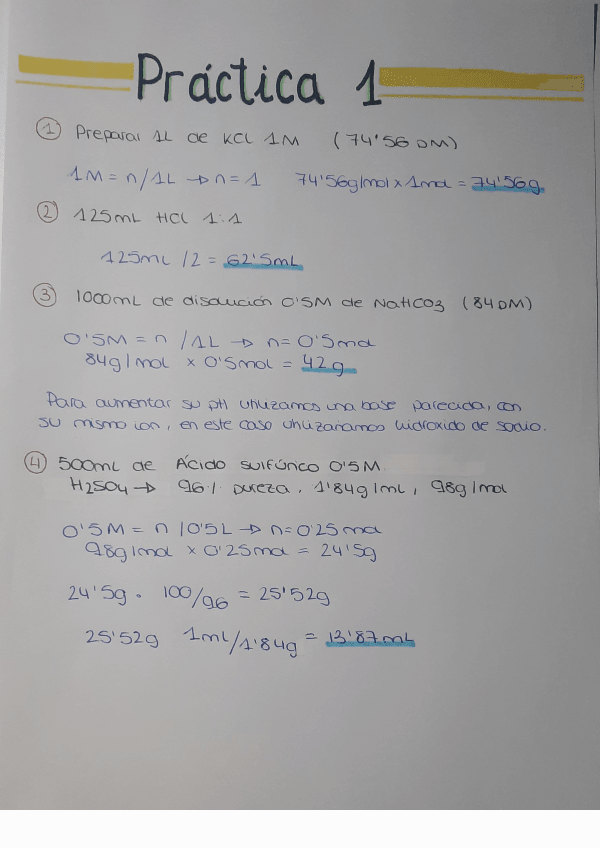 Práctica 1
① Preparar 1L de KCl 1M (74'56 DM)
1M = n/1L → n = 1 74'56g/mol x 1mol = 74'56g.
② 125mL HCl 1:1
125mL /2 = 62'5mL
③ 1000mL de disolución 0'5M de NaHCO3 (84 DM)
0'5M = n /1L → n = 0'5mol
84g/mol x 0'5mol = 42g
Para aumentar su pH utilizamos una base parecida, con
su mismo ion, en este caso utilizaríamos hidróxido de sodio.
④ 500mL de Ácido sulfúrico 0'5M.
H2SO4 → 96% pureza, 1'84g/mL, 98g/mol
0'5M = n /0'5L → n = 0'25mol
98g/mol x 0'25mol = 24'5g
24'5g · 100/96 = 25'52g
25'52g 1mL/1'84g = 13'87mL